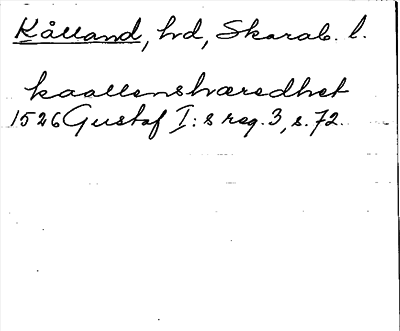 Kålland, hd, Skarab. l.
kaallenshæredhet
1526 Gustaf I:s reg. 3, s. 72.